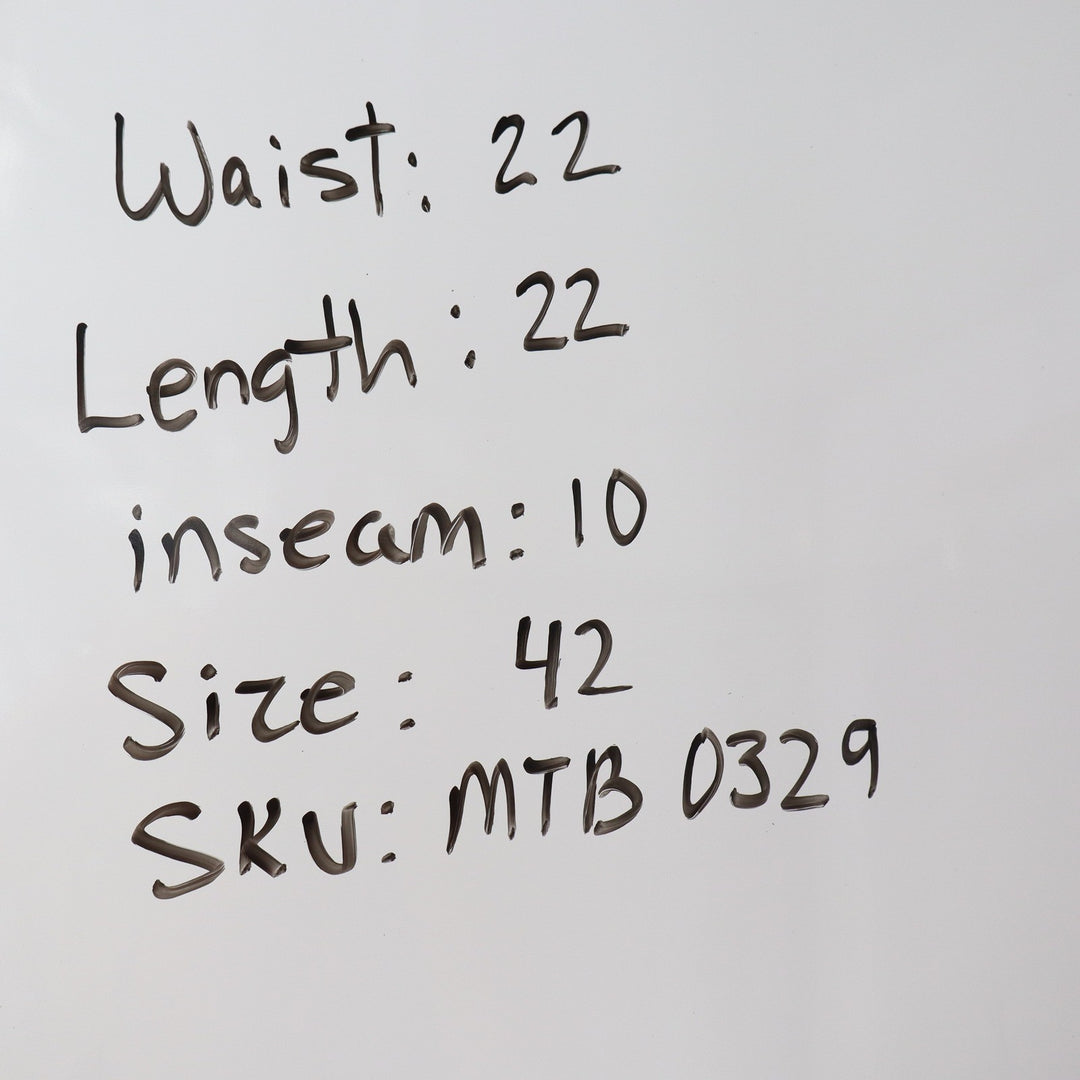 Waist: 22
Length: 22
inseam: 10
Size: 42
SKU: MTB 0329